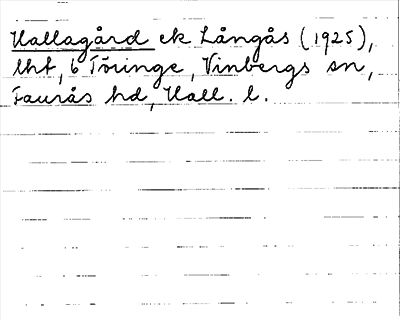 Hallagård ek Långås (1925),
lht, 6 Töringe, Vinbergs sn,
Faurås hd, Hall. l.